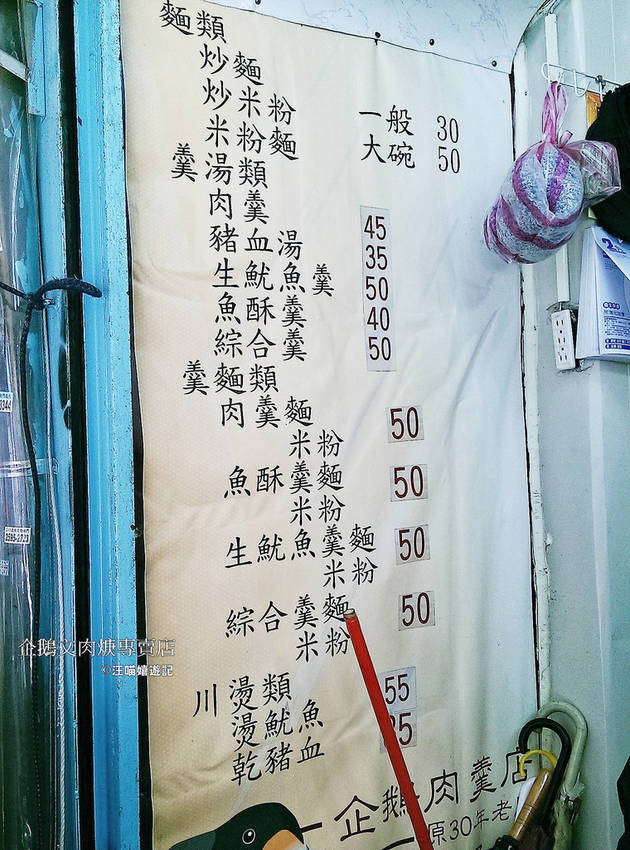 麵類
炒麵
炒米粉 一般 30
米粉麵 大碗 50
羹湯類
肉羹 45
豬血湯 35
生魷魚羹 50
魚酥羹 40
綜合羹 50
羹麵類
肉羹麵 50
米粉
魚酥羹麵 50
米粉
生魷魚羹麵 50
米粉
綜合羹麵 50
米粉
川燙類
燙魷魚 55
乾豬血
企鵝肉羹店
原30年老
3344
企鵝文肉焿專賣店
©汪喵嬉遊記